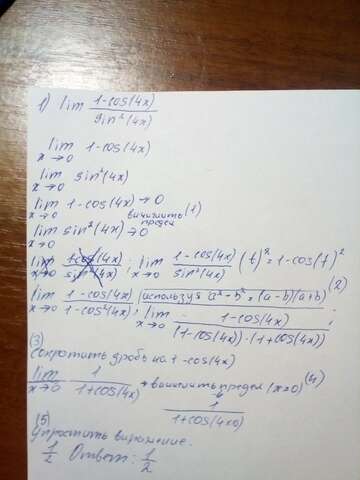 1) lim 1-cos(4x) / sin²(4x)
lim x→0 1-cos(4x)
lim x→0 sin²(4x)
lim x→0 1-cos(4x)→0
вычислить предел (1)
lim x→0 sin²(4x)→0
lim x→0 1-cos(4x) / sin²(4x) ; lim x→0 1-cos(4x) / sin²(4x) (t)²=1-cos(t)²
lim x→0 1-cos(4x) / 1-cos²(4x) используя a²-b²=(a-b)(a+b) (2)
; lim x→0 1-cos(4x) / (1-cos(4x))·(1+cos(4x)) ;
(3)
Сократить дробь на 1-cos(4x)
lim x→0 1 / 1+cos(4x) → вычислить предел (x=0) (4)
1 / 1+cos(4×0)
(5)
Упростить выражение.
1/2 Ответ: 1/2